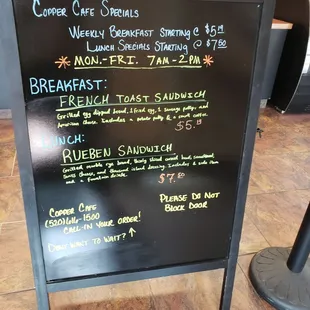 COPPER CAFE SPECIALS
WEEKLY BREAKFAST STARTING @ $5.19
LUNCH SPECIALS STARTING @ $7.50
MON.-FRI. 7AM-2PM
BREAKFAST:
FRENCH TOAST SANDWICH
Grilled egg dipped bread, 1 fried egg, 2 sausage pattys, and
American cheese. Includes a potato patty & a small coffee.
$5.19
LUNCH:
RUEBEN SANDWICH
Grilled marble rye bread, thinly sliced corned beef, sauerkraut,
Swiss cheese, and thousand island dressing. Includes a side item
and a fountain drink.
$7.50
COPPER CAFE
(520)
CALL-IN YOUR ORDER!
DON'T WANT TO WAIT?
PLEASE DO NOT
BLOCK DOOR